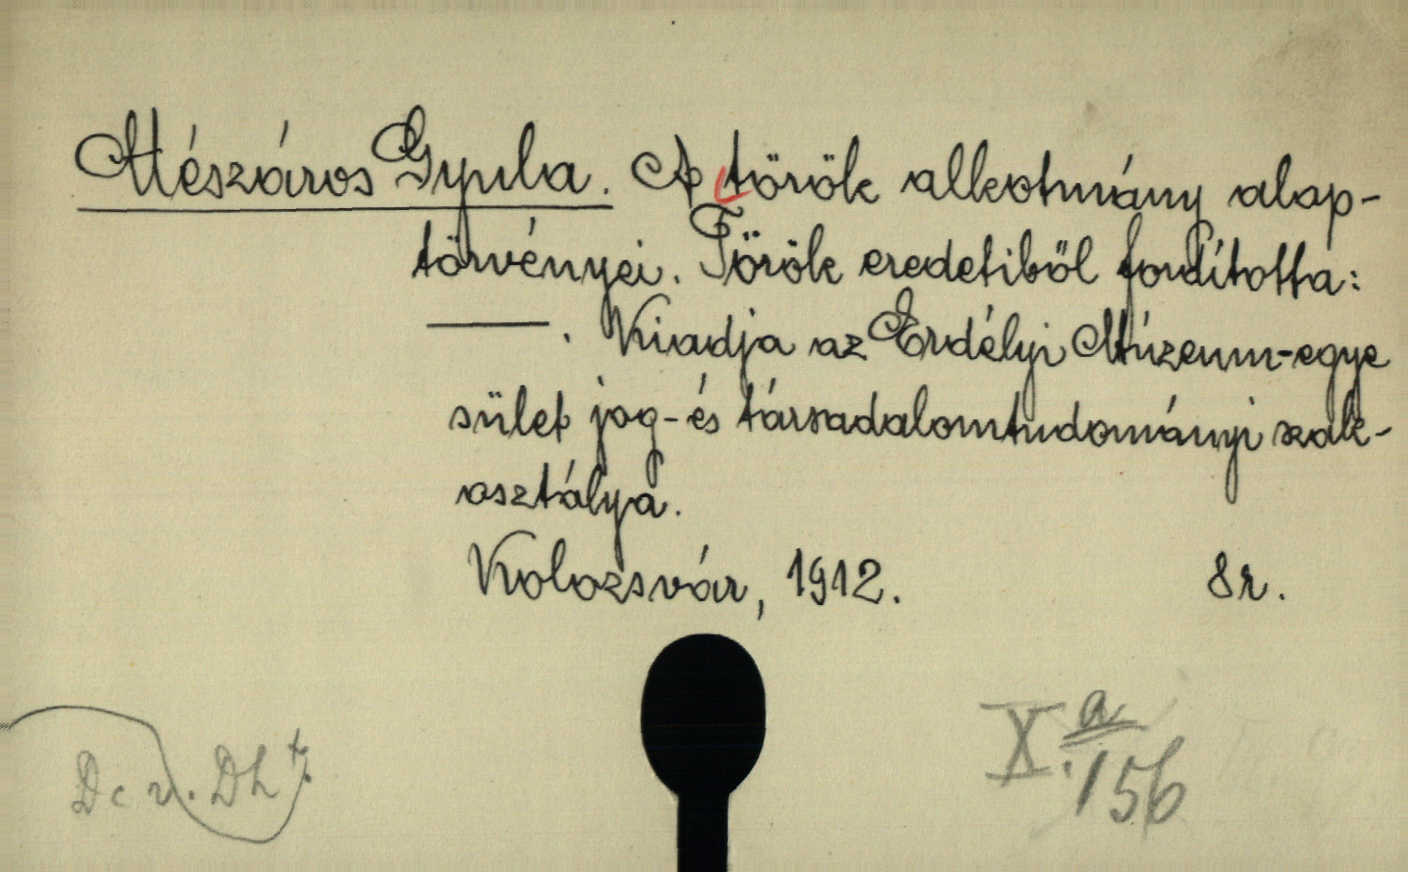 Mészáros Gyula. A török alkotmány alap-
törvényei. Török eredetiből fordította:
——. Kiadja az Erdélyi Múzeum-egye
sület jog- és társadalomtudományi szak-
osztálya.
Kolozsvár, 1912. 8r.
X. a/156